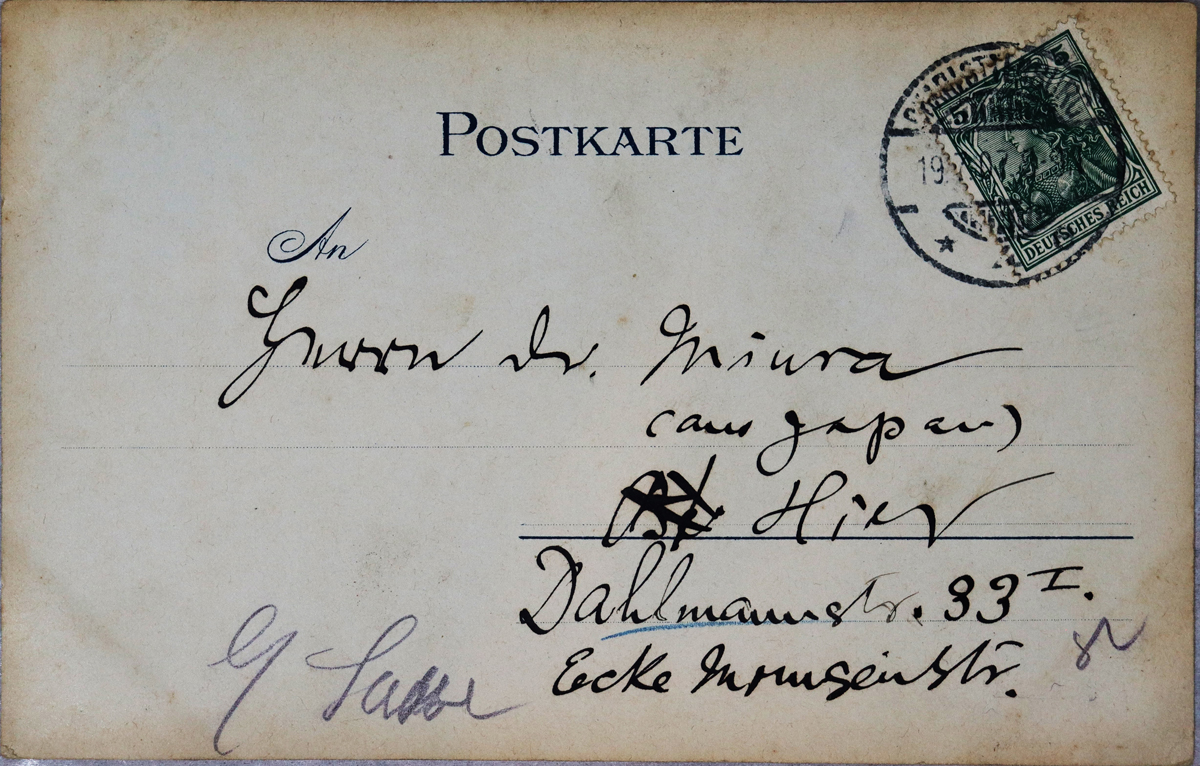 POSTKARTE
5 5
DEUTSCHES REICH
An
Herrn Dr. Miura
(aus Japan)
Hier
Dahlmannstr. 33 I.
Ecke Momsenstr.